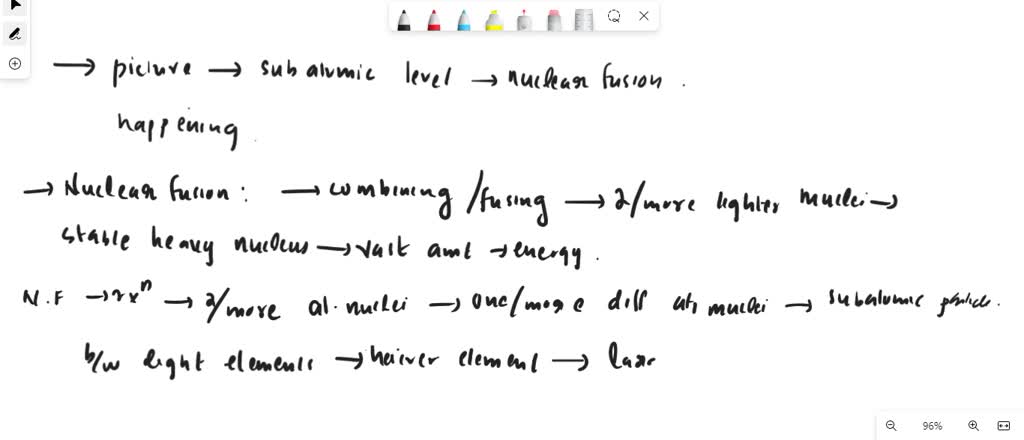 → picture → subatomic level → nuclear fusion .
happening .
→ Nuclear fusion : → combining /fusing → 2/more lighter nuclei →
stable heavy nucleus → vast amt → energy .
N.F → rxⁿ → 2/more at. nuclei → one/more diff at, nuclei → subatomic particle.
b/w light elements → heiver element →
96%